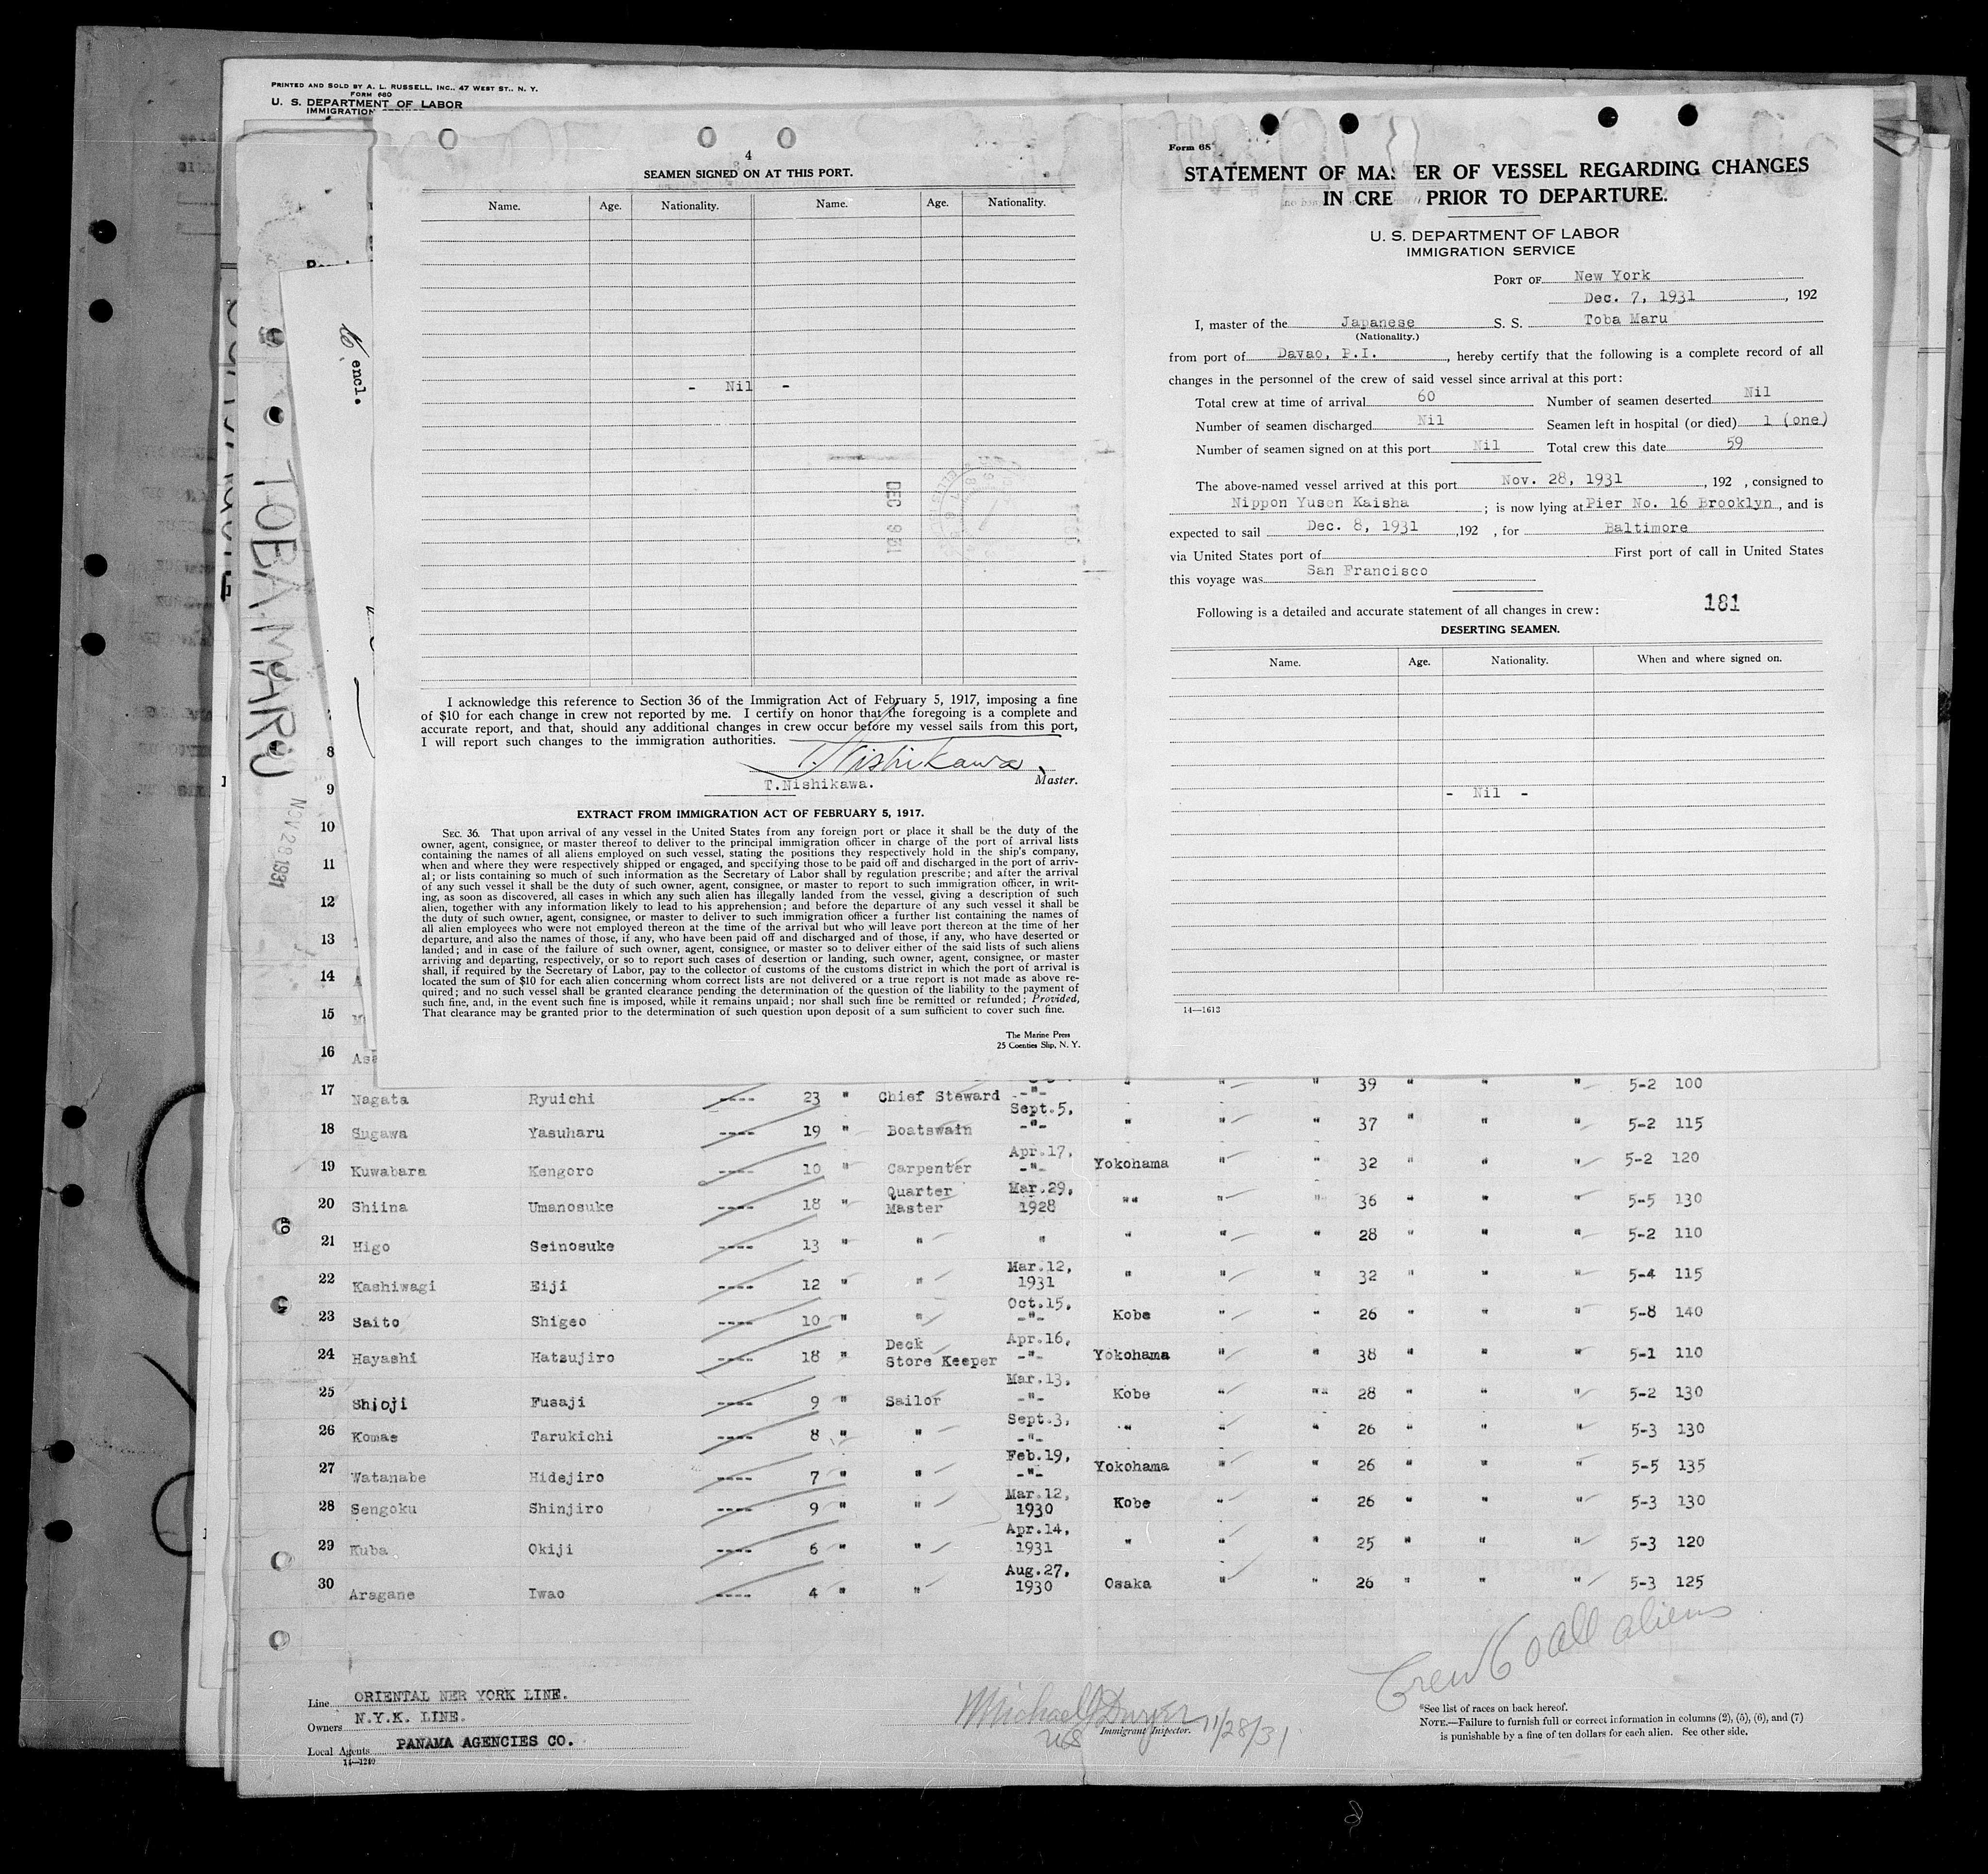 PRINTED AND SOLD BY A. L. RUSSELL, INC., 47 WEST ST., N. Y.
FORM 680
U. S. DEPARTMENT OF LABOR
IMMIGRATION
encl.
TOBA MARU
NOV 28 1931
4
SEAMEN SIGNED ON AT THIS PORT.
Name. Age. Nationality. Name. Age. Nationality.
- Nil -
DEC 9 1931
I acknowledge this reference to Section 36 of the Immigration Act of February 5, 1917, imposing a fine
of $10 for each change in crew not reported by me. I certify on honor that the foregoing is a complete and
accurate report, and that, should any additional changes in crew occur before my vessel sails from this port,
I will report such changes to the immigration authorities.
T. Nishikawa
T.Nishikawa. Master.
EXTRACT FROM IMMIGRATION ACT OF FEBRUARY 5, 1917.
SEC. 36. That upon arrival of any vessel in the United States from any foreign port or place it shall be the duty of the
owner, agent, consignee, or master thereof to deliver to the principal immigration officer in charge of the port of arrival lists
containing the names of all aliens employed on such vessel, stating the positions they respectively hold in the ship's company,
when and where they were respectively shipped or engaged, and specifying those to be paid off and discharged in the port of arriv-
al; or lists containing so much of such information as the Secretary of Labor shall by regulation prescribe; and after the arrival
of any such vessel it shall be the duty of such owner, agent, consignee, or master to report to such immigration officer, in writ-
ing, as soon as discovered, all cases in which any such alien has illegally landed from the vessel, giving a description of such
alien, together with any information likely to lead to his apprehension; and before the departure of any such vessel it shall be
the duty of such owner, agent, consignee, or master to deliver to such immigration officer a further list containing the names of
all alien employees who were not employed thereon at the time of the arrival but who will leave port thereon at the time of her
departure, and also the names of those, if any, who have been paid off and discharged and of those, if any, who have deserted or
landed; and in case of the failure of such owner, agent, consignee, or master so to deliver either of the said lists of such aliens
arriving and departing, respectively, or so to report such cases of desertion or landing, such owner, agent, consignee, or master
shall, if required by the Secretary of Labor, pay to the collector of customs of the customs district in which the port of arrival is
located the sum of $10 for each alien concerning whom correct lists are not delivered or a true report is not made as above re-
quired; and no such vessel shall be granted clearance pending the determination of the question of the liability to the payment of
such fine, and, in the event such fine is imposed, while it remains unpaid; nor shall such fine be remitted or refunded; Provided,
That clearance may be granted prior to the determination of such question upon deposit of a sum sufficient to cover such fine.
The Marine Press
25 Coenties Slip, N. Y.
Form 65
STATEMENT OF MA ER OF VESSEL REGARDING CHANGES
IN CRE PRIOR TO DEPARTURE.
U. S. DEPARTMENT OF LABOR
IMMIGRATION SERVICE
PORT OF New York
Dec. 7, 1931, 192
I, master of the Japanese S. S. Toba Maru
(Nationality.)
from port of Davao, P.I., hereby certify that the following is a complete record of all
changes in the personnel of the crew of said vessel since arrival at this port:
Total crew at time of arrival 60 Number of seamen deserted Nil
Number of seamen discharged Nil Seamen left in hospital (or died) 1 (one)
Number of seamen signed on at this port Nil Total crew this date 59
The above-named vessel arrived at this port Nov. 28, 1931, 192 , consigned to
Nippon Yusen Kaisha ; is now lying at Pier No. 16 Brooklyn, and is
expected to sail Dec. 8, 1931 ,192 , for Baltimore
via United States port of First port of call in United States
this voyage was San Francisco
Following is a detailed and accurate statement of all changes in crew: 181
DESERTING SEAMEN.
Name. Age. Nationality. When and where signed on.
- Nil -
14—1613
8
9
10
11
12
13
14
15
16
17 Nagata Ryuichi ---- 23 " Chief Steward -"- " " " 39 " " " 5-2 100
18 Sugawa Yasuharu ---- 19 " Boatswain Sept.5, -"- " " " 37 " " " 5-2 115
19 Kuwabara Kengoro ---- 10 " Carpenter Apr.17, -"- Yokohama " " 32 " " " 5-2 120
20 Shiina Umanosuke ---- 18 " Quarter Master Mar.29, 1928 "" " " 36 " " " 5-5 130
21 Higo Seinosuke ---- 13 " " " " " " 28 " " " 5-2 110
22 Kashiwagi Eiji ---- 12 " " Mar.12, 1931 " " " 32 " " " 5-4 115
23 Saito Shigeo ---- 10 " " Oct.15, -"- Kobe " " 26 " " " 5-8 140
24 Hayashi Hatsujiro ---- 18 " Deck Store Keeper Apr.16, -"- Yokohama " " 38 " " " 5-1 110
25 Shioji Fusaji ---- 9 " Sailor Mar.13, -"- Kobe " "" 28 " " " 5-2 130
26 Komae Tarukichi ---- 8 " " Sept.3, -"- " " " 26 " " " 5-3 130
27 Watanabe Hidejiro ---- 7 " " Feb.19, -"- Yokohama " " 26 " " " 5-5 135
28 Sengoku Shinjiro ---- 9 " " Mar.12, 1930 Kobe " " 26 " " " 5-3 130
29 Kuba Okiji ---- 6 " " Apr.14, 1931 " " " 25 " " " 5-3 120
30 Aragane Iwao ---- 4 " " Aug.27, 1930 Osaka " " 26 " " " 5-3 125
Crew 60 all aliens
Line ORIENTAL NER YORK LINE.
Owners N.Y.K. LINE.
Local Agents PANAMA AGENCIES CO.
14—1240
Michael J Dwyer 11/28/31
Immigrant Inspector.
*See list of races on back hereof.
NOTE.—Failure to furnish full or correct information in columns (2), (5), (6), and (7)
is punishable by a fine of ten dollars for each alien. See other side.